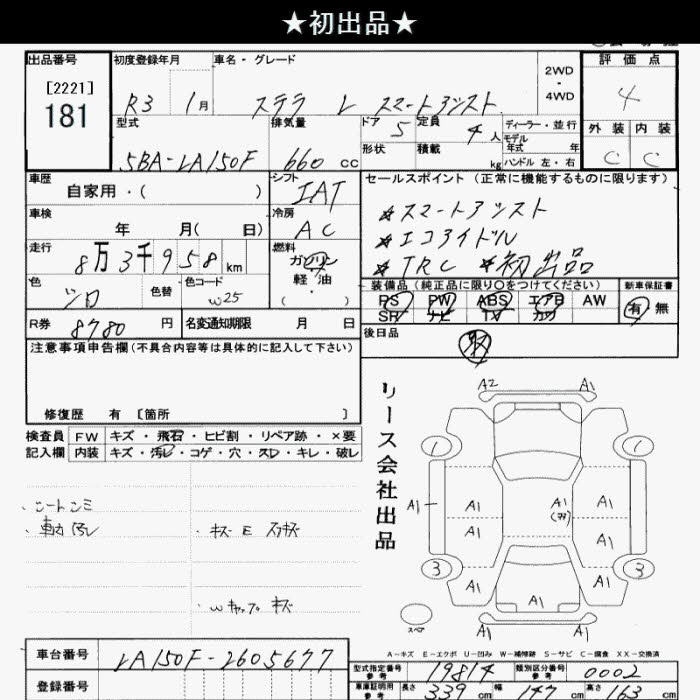 ★初出品★
出品番号 初度登録年月 車名・グレード 2WD 評価点
[2221] 4WD
181 R3 1月 ステラ L スマートアシスト 4
型式 排気量 ドア 5 定員 4人 ディーラー・並行 外装 内装
モデル年式 年
5BA-LA150F 660cc 形状 積載 kg ハンドル 左・右 C C
車歴 シフト セールスポイント (正常に機能するものに限ります)
自家用・( ) IAT ★スマートアシスト
車検 冷房
年 月( 日) AC ★エコアイドル
走行 燃料
8万3千958km ガソリン ★TRC ★初出品
軽油
・( )
色 色替 色コード 装備品(純正品に限り○をつけてください) 新車保証書
シロ W25 PS PW ABS エアB AW 有 無
SR ナビ TV カワ
R券 8780円 名変通知期限 月 日 後日品
注意事項申告欄(不具合内容等は具体的に記入して下さい)
修復歴 有 [箇所 ]
検査員 FW キズ・飛石・ヒビ割・リペア跡・×要
記入欄 内装 キズ・汚レ・コゲ・穴・スレ・キレ・破レ
リース会社出品
A2 A1
1 1
A1 A1 A1 A1
A1 A1
3 3
A1 A1 A1
スペア A1 A1
A-キズ E-エクボ U-凹み W-補修跡 S-サビ C-腐食 XX-交換済
車台番号 LA150F-2605677 型式指定番号 参考 19814 類別区分番号 参考 0002
登録番号 車庫証明用 参考 長さ 339cm 幅 147cm 高さ 163cm